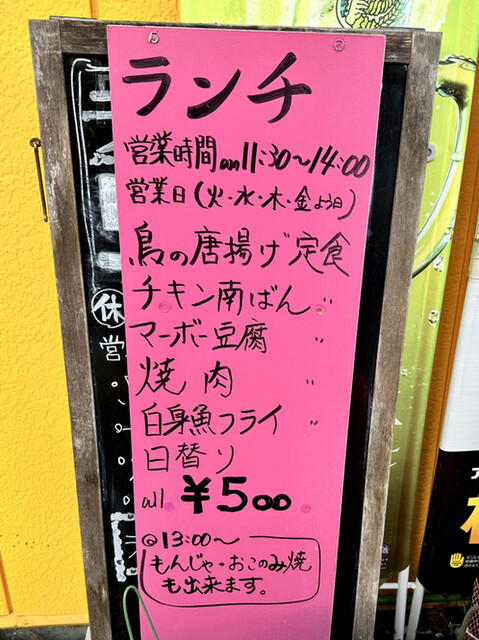 ランチ
営業時間am11:30～14:00
営業日(火・水・木・金よう日)
鳥の唐揚げ定食
チキン南ばん 〃
マーボー豆腐 〃
焼肉 〃
白身魚フライ 〃
日替り
all ￥500
◎13:00～
もんじゃ・おこのみ焼
も出来ます。
休
営